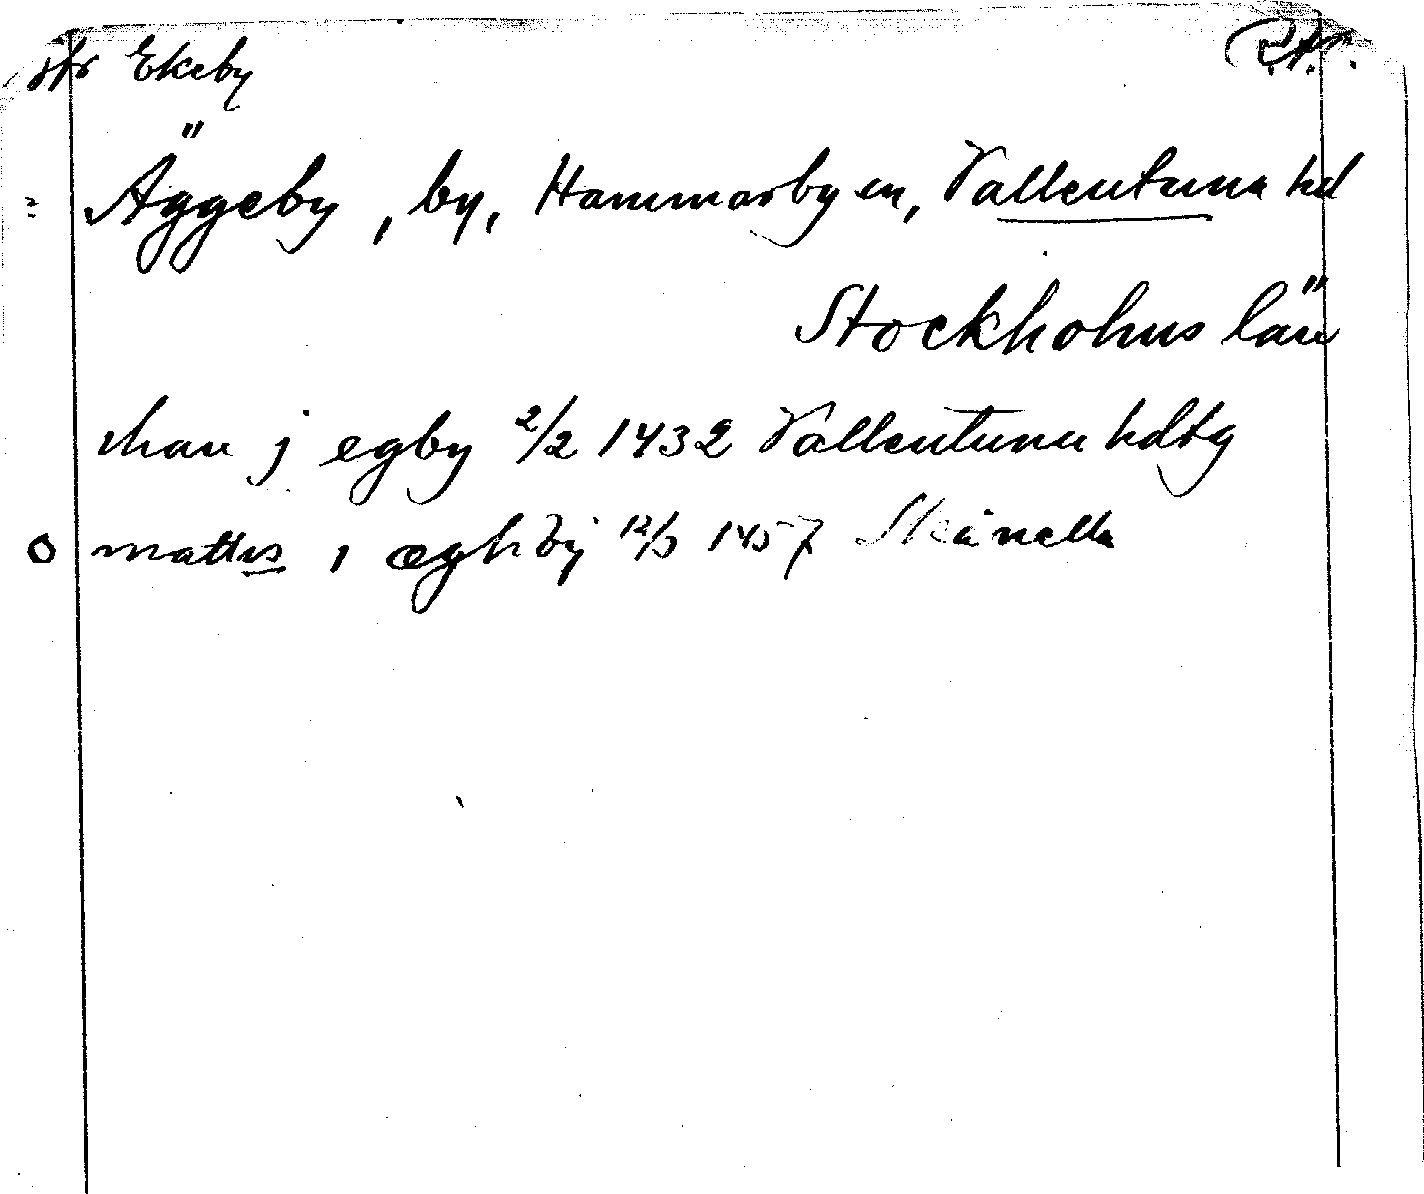 jfr Ekeby
R.A.
Äggeby, by, Hammarby sn, Vallentuna hd
Stockholms län
j egby 2/2 1432 Vallentuna hdtg
mattis i æghby 12/3 1457 Skånella